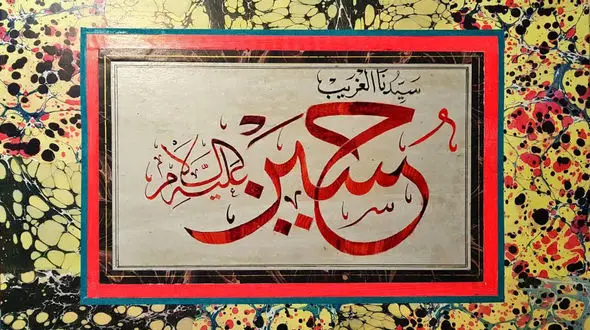 سَيِّدُنَا الْغَرِيْب
حُسَين
عَلَيْهِ السَّلَام